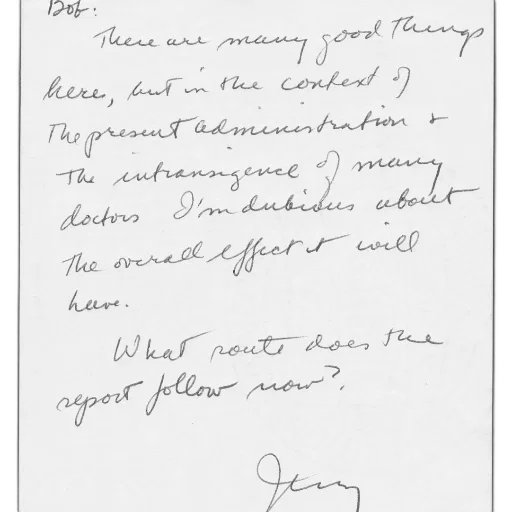 Bob:
There are many good things
here, but in the context of
the present administration &
the intransigence of many
doctors I'm dubious about
the overall effect it will
have.
What route does the
report follow now?
Jerry